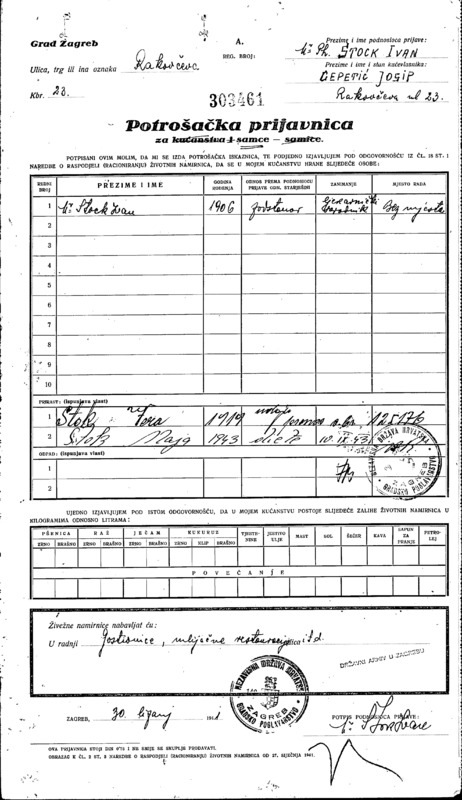 Grad Zagreb
A.
REG. BROJ:
Prezime i ime podnosioca prijave:
Mr. Ph. STOCK IVAN
Ulica, trg ili ina oznaka
Prezime i ime i stan kućevlasnika:
ČEPETIĆ JOSIP
Kbr. 23.
303461
Rakovčeva ul 23.
Potrošačka prijavnica
za kućanstva i samce — samice.
POTPISANI OVIM MOLIM, DA MI SE IZDA POTROŠAČKA ISKAZNICA, TE PODJEDNO IZJAVLJUJEM POD ODGOVORNOŠĆU IZ ČL. 15 ST. 1
NAREDBE O RASPODJELI (RACIONIRANJU) ŽIVOTNIH NAMIRNICA, DA SE U MOJEM KUĆANSTVU HRANE SLIJEDEĆE OSOBE:
REDNI BROJ
PREZIME I IME
GODINA ROĐENJA
ODNOS PREMA PODNOSIOCU PRIJAVE ODN. STARJEŠINI
ZANIMANJE
MJESTO RADA
1 Mr. Stock Ivan 1906 podstanar Bez mjesta
2
3
4
5
6
7
8
9
10
PRIRAST: (ispunjava vlast)
1 Štok Vera 1919 125176
2 Štok Maja 1943 10. IX. 43
OTPAD: (ispunjava vlast)
1
2
NEZAVISNA DRŽAVA HRVATSKA
ZAGREB
GRADSKO POGLAVARSTVO
UJEDNO IZJAVLJUJEM POD ISTOM ODGOVORNOŠĆU, DA U MOJEM KUĆANSTVU POSTOJE SLIJEDEĆE ZALIHE ŽIVOTNIH NAMIRNICA U
KILOGRAMIMA ODNOSNO LITRAMA:
PŠENICA RAŽ JEČAM KUKURUZ TJESTENINE JESTIVO ULJE MAST SOL ŠEĆER KAVA SAPUN ZA PRANJE PETROLEJ
ZRNO BRAŠNO ZRNO BRAŠNO ZRNO BRAŠNO ZRNO KLIP BRAŠNO
POVEĆANJE
Živežne namirnice nabavljat ću:
U radnji Gostionice, mliječne restauracije i t.d.
DRŽAVNI ARHIV U ZAGREBU
NEZAVISNA DRŽAVA HRVATSKA
ZAGREB
GRADSKO POGLAVARSTVO
ZAGREB, 30. lipanj 1941.
POTPIS PODNOSIOCA PRIJAVE:
Mr. Stock Ivan
OVA PRIJAVNICA STOJI DIN 0'75 I NE SMIJE SE SKUPLJE PRODAVATI.
OBRAZAC K ČL. 3 ST. 2 NAREDBE O RASPODJELI (RACIONIRANJU) ŽIVOTNIH NAMIRNICA OD 27. SIJEČNJA 1941.